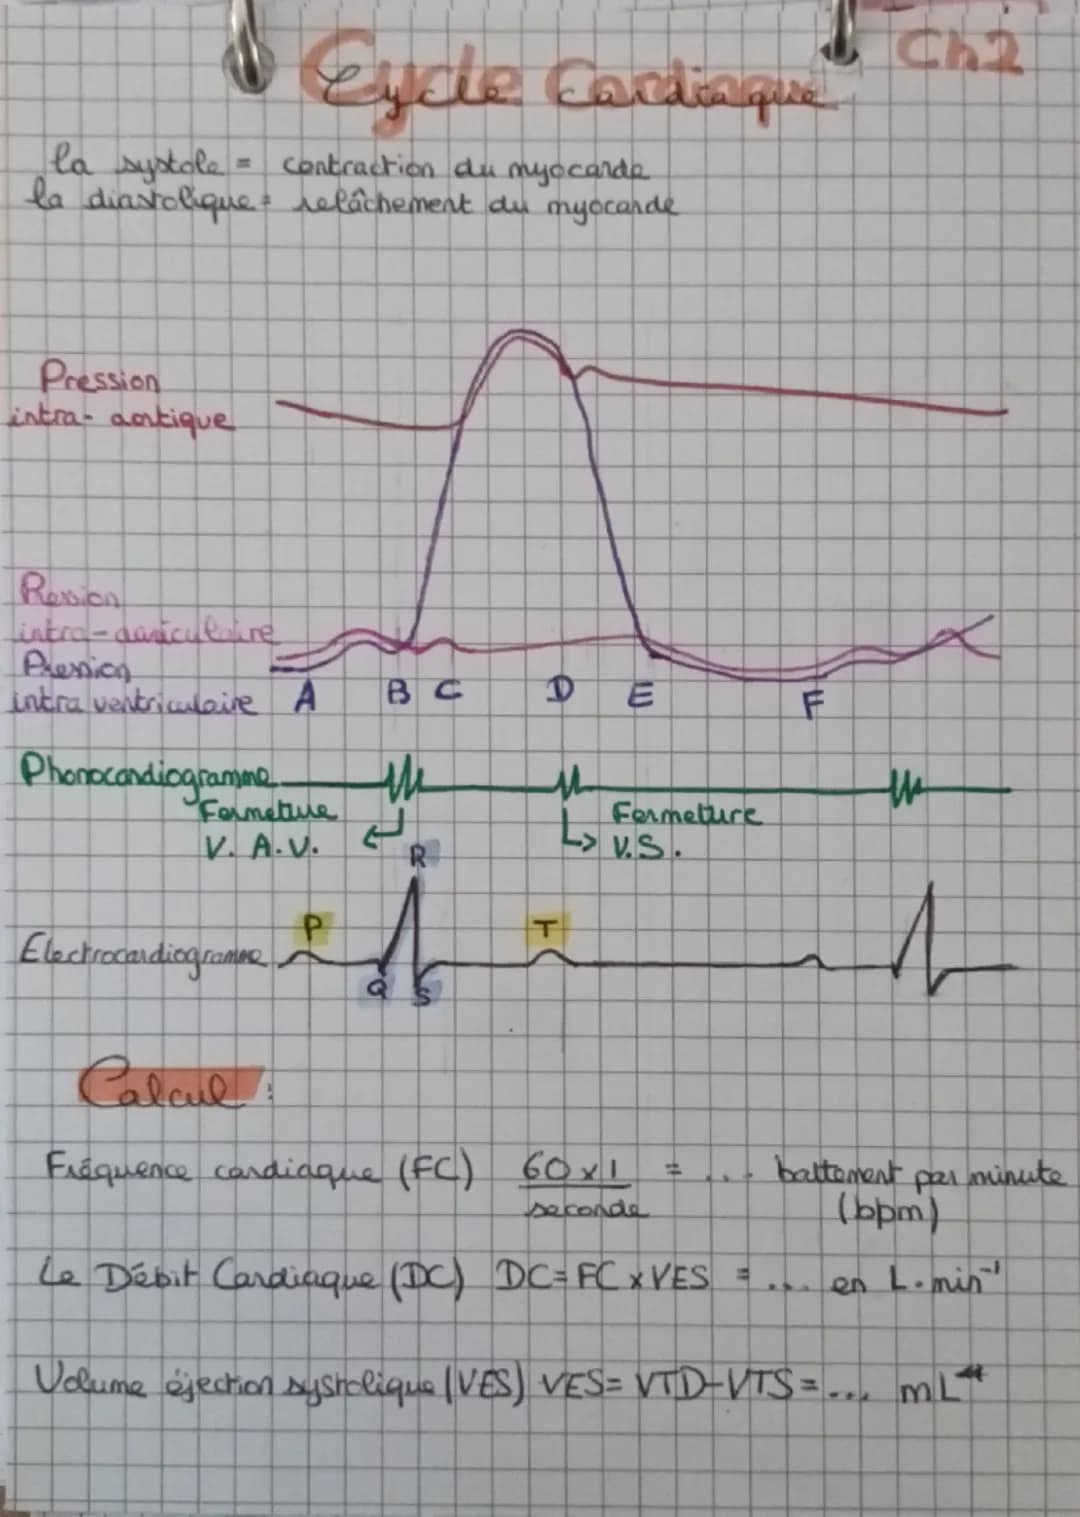 Ch2
Cycle Cardiaque
la systole = contraction du myocarde
la diastolique = relâchement du myocarde
Pression
intra-aortique
Pression
intra-auriculaire
Pression
intra ventriculaire
A B C D E F
Phonocardiogramme
Fermeture
V. A.V.
Fermeture
V.S.
R
P
T
Electrocardiogramme
Q S
Calcul :
Fréquence cardiaque (FC) 60x1 = ... battement par minute
seconde (bpm)
Le Débit Cardiaque (DC) DC=FCxVES = ... en L.min⁻¹
Volume éjection systolique (VES) VES= VTD-VTS = ... mL